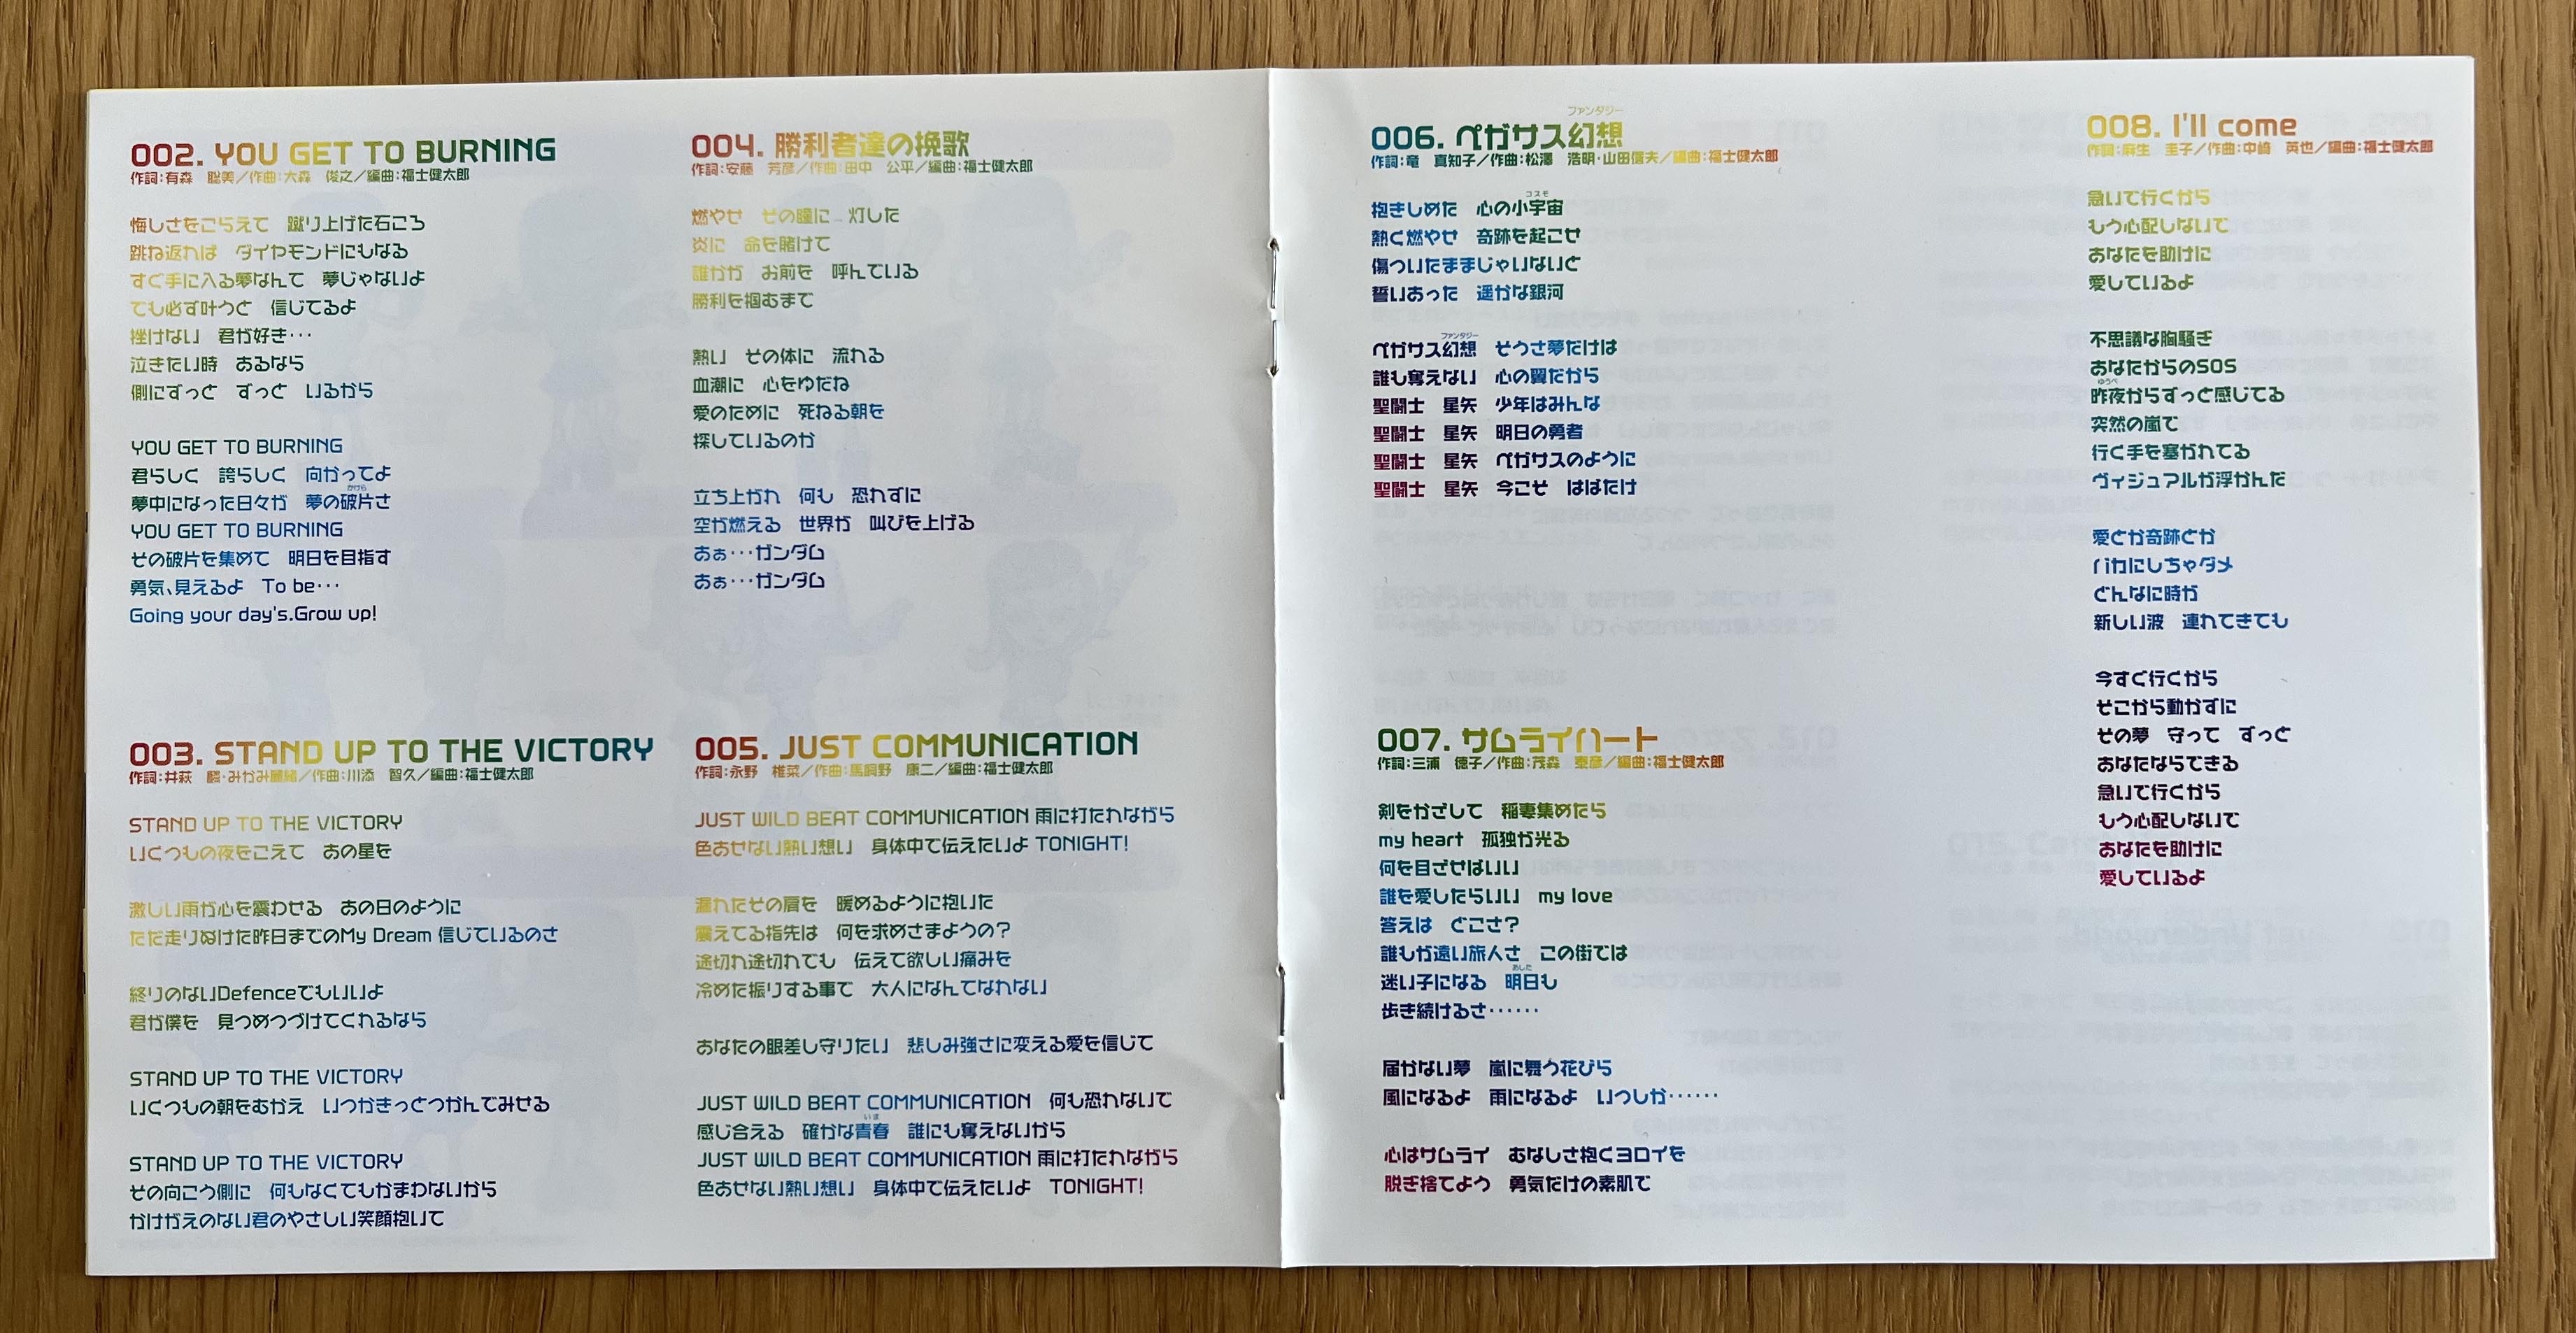 002. YOU GET TO BURNING
作詞:有森　聡美／作曲:大森　俊之／編曲:福士健太郎
悔しさをこらえて　蹴り上げた石ころ
跳ね返れば　ダイヤモンドにもなる
すぐ手に入る夢なんて　夢じゃないよ
でも必ず叶うと　信じてるよ
挫けない　君が好き…
泣きたい時　あるなら
側にずっと　ずっと　いるから
YOU GET TO BURNING
君らしく　誇らしく　向かってよ
かけら
夢中になった日々が　夢の破片さ
YOU GET TO BURNING
その破片を集めて　明日を目指す
勇気、見えるよ　To be…
Going your day's.Grow up!
003. STAND UP TO THE VICTORY
作詞:井荻　麟・みかみ麗緒／作曲:川添　智久／編曲:福士健太郎
STAND UP TO THE VICTORY
いくつもの夜をこえて　あの星を
激しい雨が心を震わせる　あの日のように
ただ走りぬけた昨日までのMy Dream 信じているのさ
終りのないDefenceでもいいよ
君が僕を　見つめつづけてくれるなら
STAND UP TO THE VICTORY
いくつもの朝をむかえ　いつかきっとつかんでみせる
STAND UP TO THE VICTORY
その向こう側に　何もなくてもかまわないから
かけがえのない君のやさしい笑顔抱いて
004. 勝利者達の挽歌
作詞:安藤　芳彦／作曲:田中　公平／編曲:福士健太郎
燃やせ　その瞳に　灯した
炎に　命を賭けて
誰かが　お前を　呼んでいる
勝利を掴むまで
熱い　その体に　流れる
血潮に　心をゆだね
愛のために　死ねる朝を
探しているのか
立ち上がれ　何も　恐れずに
空が燃える　世界が　叫びを上げる
あぁ…ガンダム
あぁ…ガンダム
005. JUST COMMUNICATION
作詞:永野　椎菜／作曲:馬飼野　康二／編曲:福士健太郎
JUST WILD BEAT COMMUNICATION 雨に打たれながら
色あせない熱い想い　身体中で伝えたいよ TONIGHT!
濡れたその肩を　暖めるように抱いた
震えてる指先は　何を求めさまようの?
途切れ途切れでも　伝えて欲しい痛みを
冷めた振りする事で　大人になんてなれない
あなたの眼差し守りたい　悲しみ強さに変える愛を信じて
JUST WILD BEAT COMMUNICATION　何も恐れないで
いま
感じ合える　確かな青春　誰にも奪えないから
JUST WILD BEAT COMMUNICATION 雨に打たれながら
色あせない熱い想い　身体中で伝えたいよ　TONIGHT!
ファンタジー
006. ペガサス幻想
作詞:竜　真知子／作曲:松澤　浩明・山田信夫／編曲:福士健太郎
コスモ
抱きしめた　心の小宇宙
熱く燃やせ　奇跡を起こせ
傷ついたままじゃいないと
誓いあった　遥かな銀河
ファンタジー
ペガサス幻想　そうさ夢だけは
誰も奪えない　心の翼だから
聖闘士　星矢　少年はみんな
聖闘士　星矢　明日の勇者
聖闘士　星矢　ペガサスのように
聖闘士　星矢　今こそ　はばたけ
007. サムライハート
作詞:三浦　徳子／作曲:茂森　東彦／編曲:福士健太郎
剣をかざして　稲妻集めたら
my heart　孤独が光る
何を目ざせばいい
誰を愛したらいい　my love
答えは　どこさ?
誰もが遠い旅人さ　この街では
あした
迷い子になる　明日も
歩き続けるさ……
届かない夢　嵐に舞う花びら
風になるよ　雨になるよ　いつしか……
心はサムライ　むなしさ抱くヨロイを
脱ぎ捨てよう　勇気だけの素肌で
008. I'll come
作詞:麻生　圭子／作曲:中崎　英也／編曲:福士健太郎
急いで行くから
もう心配しないで
あなたを助けに
愛しているよ
不思議な胸騒ぎ
あなたからのSOS
ゆうべ
昨夜からずっと感じてる
突然の嵐で
行く手を塞がれてる
ヴィジュアルが浮かんだ
愛とか奇跡とか
バカにしちゃダメ
どんなに時が
新しい波　連れてきても
今すぐ行くから
そこから動かずに
その夢　守って　ずっと
あなたならできる
急いで行くから
もう心配しないで
あなたを助けに
愛しているよ